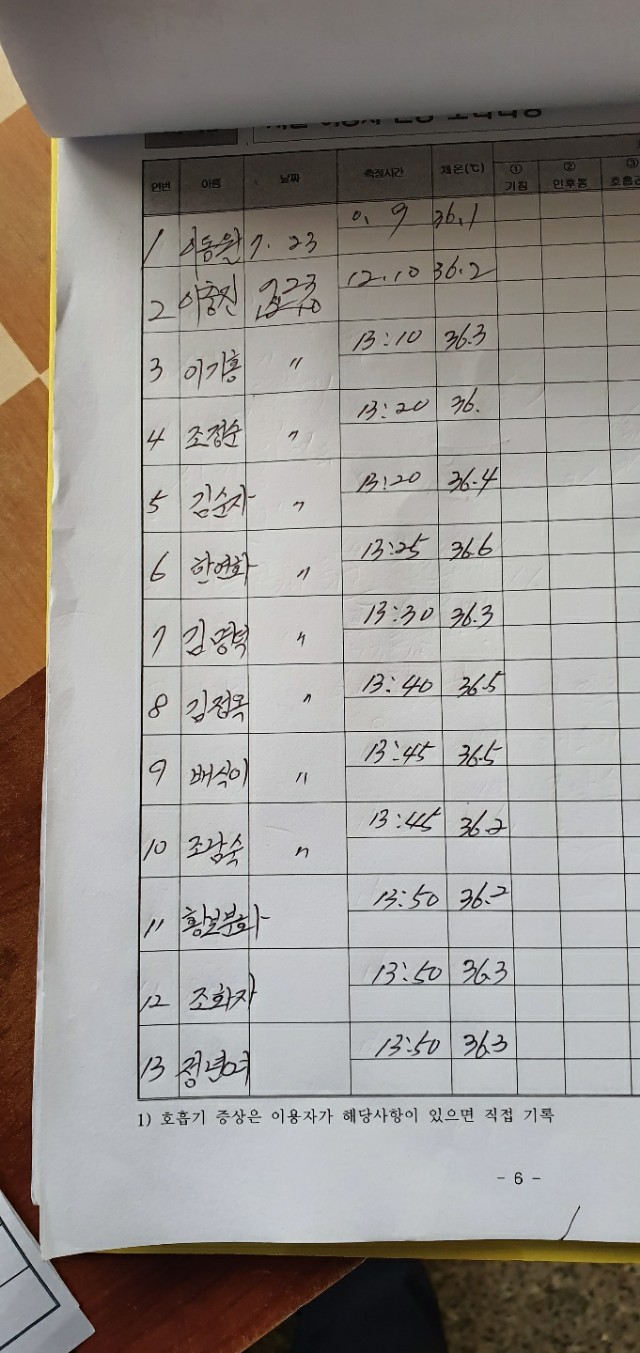 연번 이름 날짜 측정시간 체온(℃) ① 기침 ② 인후통 ③
1 이동원 7. 23 36.1
2 이홍진 12.10 36.2
3 이기홍 〃 13:10 36.3
4 조정순 〃 13:20 36.
5 김순자 〃 13:20 36.4
6 한연화 〃 13:25 36.6
7 김명덕 〃 13:30 36.3
8 김점옥 〃 13:40 36.5
9 배식이 〃 13:45 36.5
10 조남숙 〃 13:45 36.2
11 황보분화 13:50 36.2
12 조화자 13:50 36.3
13 정년여 13:50 36.3
1) 호흡기 증상은 이용자가 해당사항이 있으면 직접 기록
- 6 -